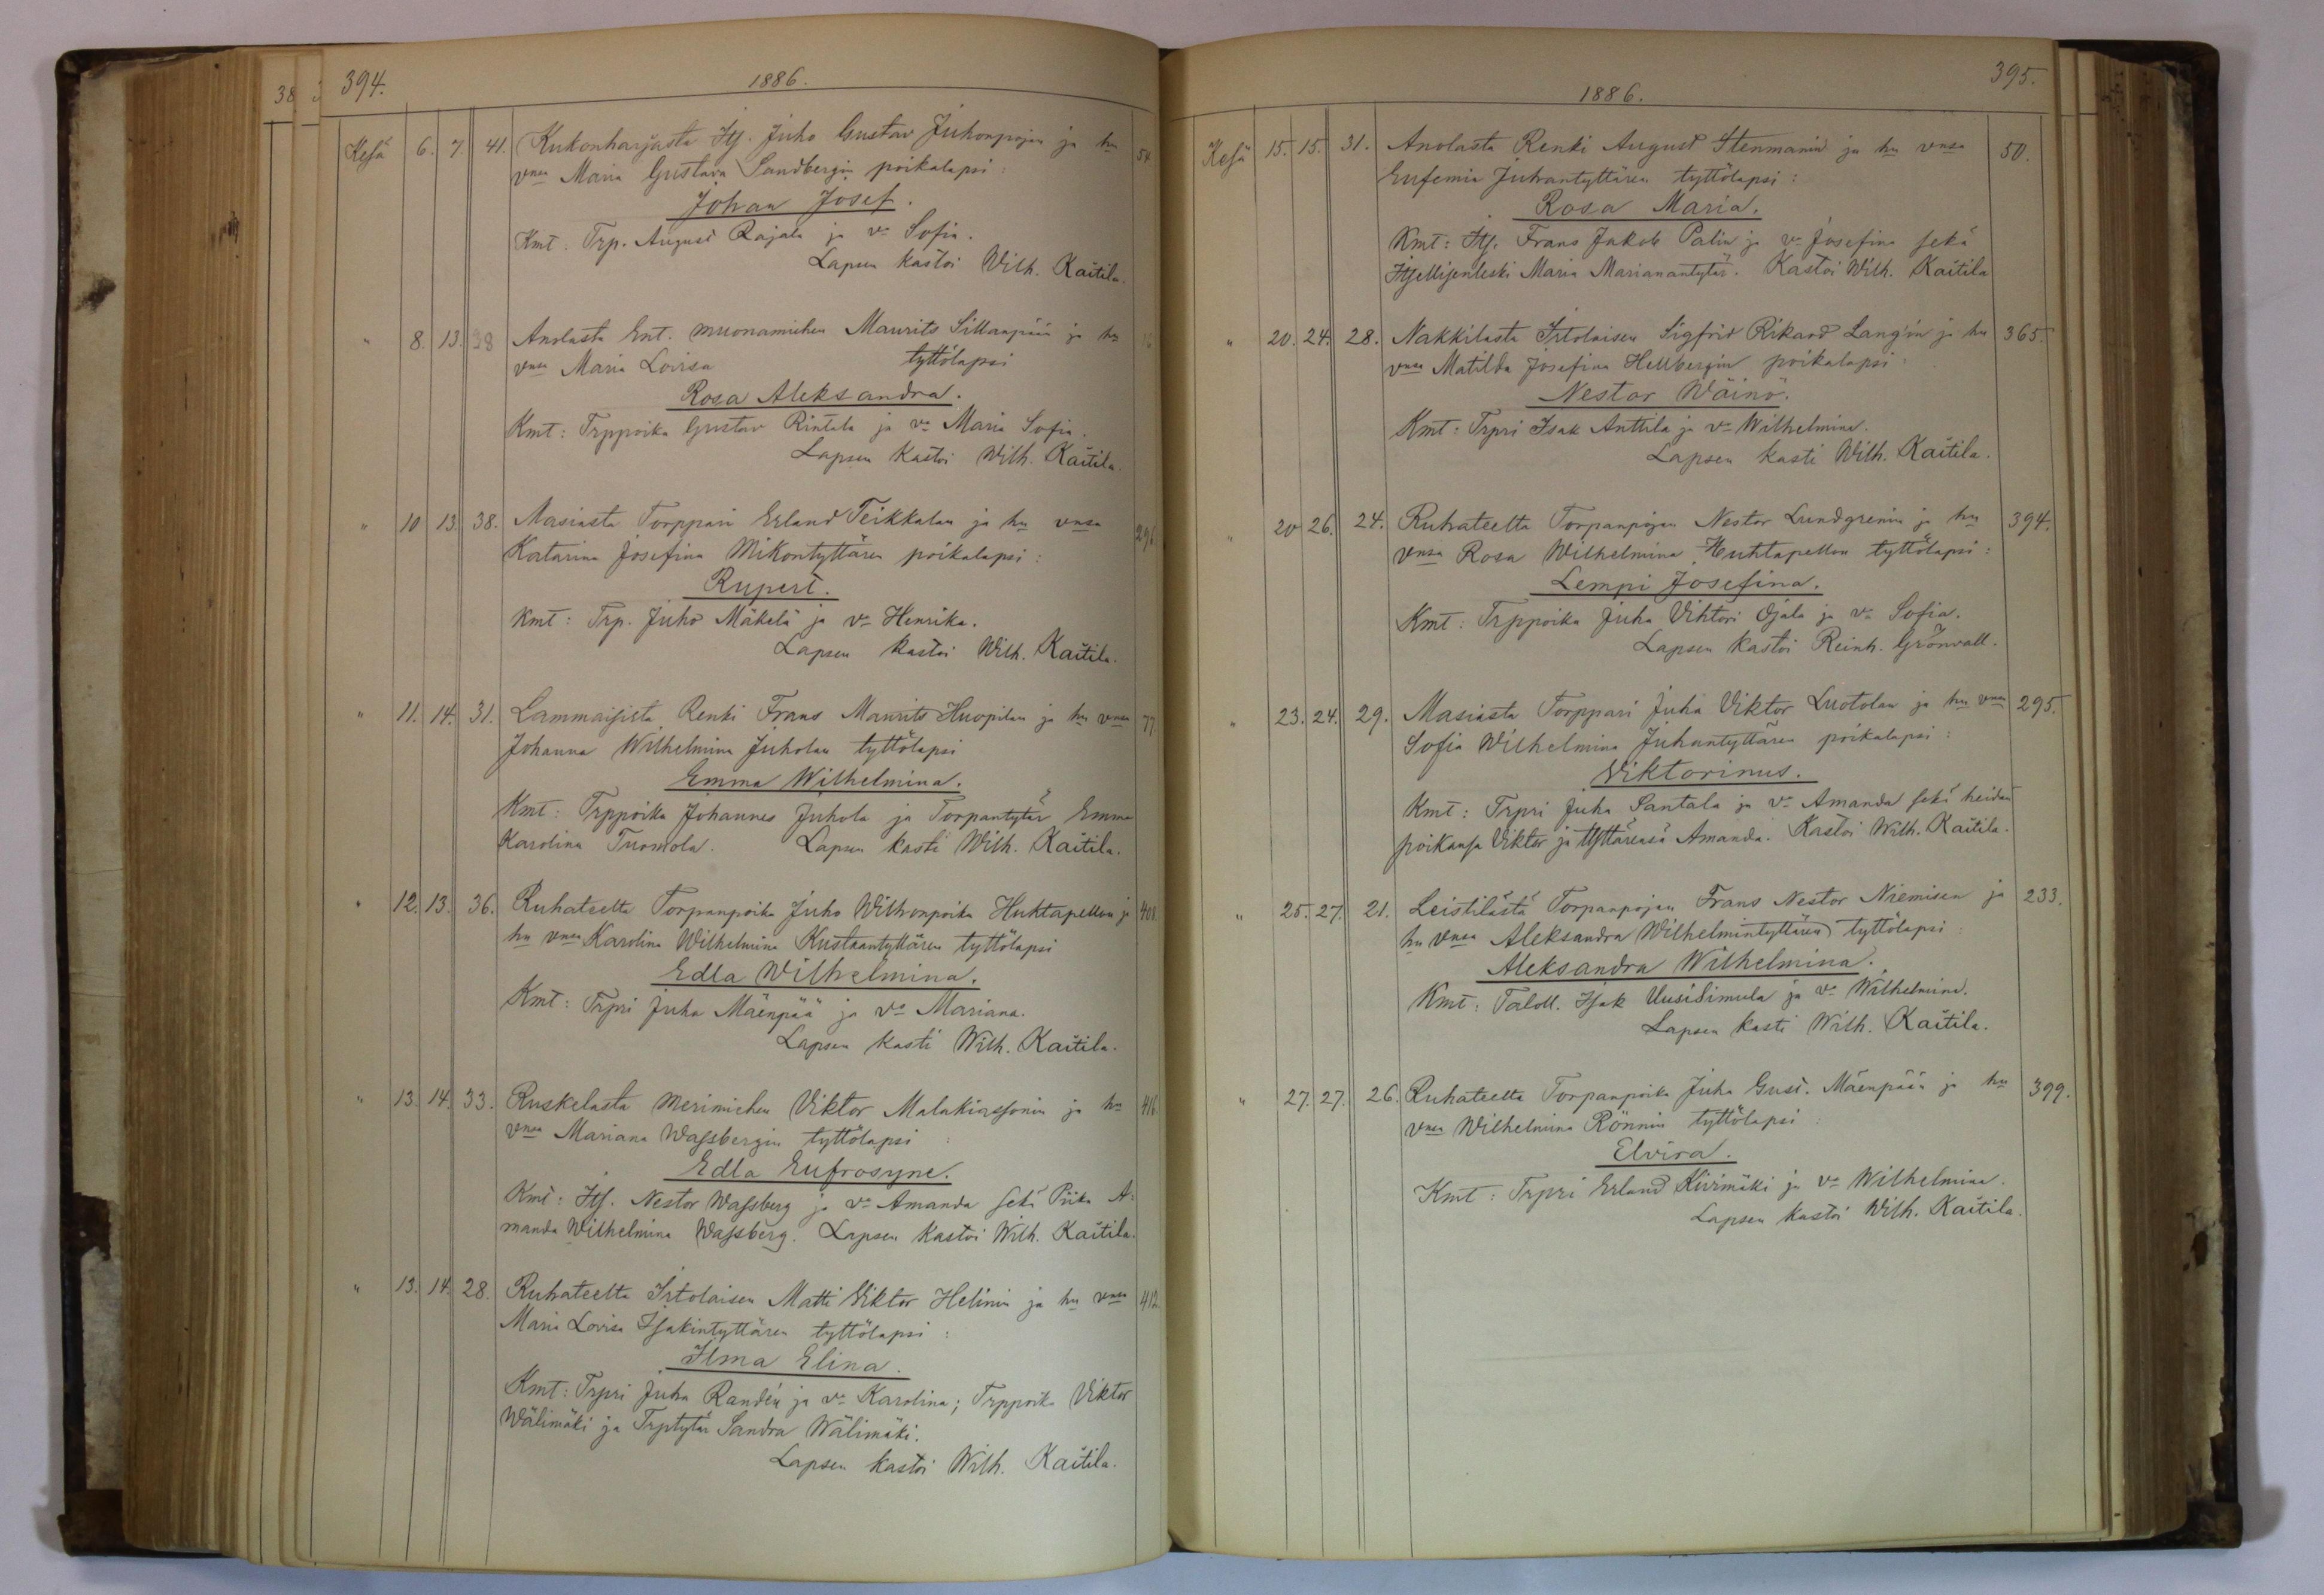 38
394.
1886.
Kesä 6. 7. 41. Kukonharjasta Itj. Juho Gustav Juhonpojan ja hn 54
vnsa Maria Gustava Sandbergin poikalapsi:
Johan Josef.
Kmt. Trp. August Rajala ja vo Sofia.
Lapsen kastoi Wilh. Kaitila.
" 8. 13. 38 Anolasta Ent. muonamiehen Maurits Sillanpään ja hn
vnsa Maria Lovisa tyttölapsi
Rosa Aleksandra.
Kmt: Trppoika Gustav Rintala ja vo Maria Sofia.
Lapsen kastoi Wilh. Kaitila.
" 10 13. 38. Masiasta Torppari Erland Teikkalan ja hn vnsa 296
Katarina Josefina Mikontyttären poikalapsi:
Rupert.
Kmt: Trp. Juho Mäkelä ja vo Henrika.
Lapsen kastoi Wilh. Kaitila.
" 11. 14. 31. Lammaisista Renki Frans Maurits Huopilan ja hn vnsa 77
Johanna Wilhelmina Juholan tyttölapsi
Emma Wilhelmina.
Kmt: Trppoika Johannes Juhola ja Torpantytär Emma
Karolina Tuomola. Lapsen kasti Wilh. Kaitila.
" 12. 13. 36. Ruhateelta Torpanpoika Juho Wilhonpoika Huhtapellon ja 401.
hn vnsa Karolina Wilhelmina Kustaantyttären tyttölapsi
Edla Wilhelmina.
Kmt: Trpri Juha Mäenpää ja vo Mariana.
Lapsen kasti Wilh. Kaitila.
" 13. 14. 33. Ruskelasta merimiehen Viktor Malakiassonin ja hn 416
vnsa Mariana Wassbergin tyttölapsi:
Edla Eufrosyne.
Kmt: Itj. Nestor Wassberg ja vo Amanda sekä Piika A-
manda Wilhelmina Wassberg. Lapsen kastoi Wilh. Kaitila.
" 13. 14. 28. Ruhateelta Irtolaisen Matti Viktor Helinin ja hn vnsa 412.
Maria Lovisa Isakintyttären tyttölapsi:
Ilma Elina.
Kmt: Trpri Juha Randén ja vo Karolina; Trppoika Viktor
Wälimäki ja Trptytär Sandra Wälimäki.
Lapsen kastoi Wilh. Kaitila.
395.
1886.
Kesä 15. 15. 31. Anolasta Renki August Stenmanin ja hn vnsa 50.
Eufemia Juhantyttären tyttölapsi:
Rosa Maria.
Kmt: Itj. Frans Jakob Palin ja vo Josefina sekä
Itsellisenleski Maria Marianantytär. Kastoi Wilh. Kaitila
" 20. 24. 28. Nakkilasta Irtolaisen Sigfrid Rikard Lang'in ja hn 365.
vnsa Matilda Josefina Hellbergin poikalapsi:
Nestor Wäinö.
Kmt: Trpri Isak Anttila ja vo Wilhelmina.
Lapsen kasti Wilh. Kaitila.
" 20 26. 24. Ruhateelta Torpanpojan Nestor Lundgrenin ja hn 394.
vnsa Rosa Wilhelmina Huhtapellon tyttölapsi:
Lempi Josefina.
Kmt: Trppoika Juha Vihtori Ojala ja vo Sofia.
Lapsen kastoi Reinh. Grönvall.
" 23. 24. 29. Masiasta Torppari Juha Viktor Luotolan ja hn vnsa 295.
Sofia Wilhelmina Juhantyttären poikalapsi:
Viktorinus.
Kmt: Trpri Juha Santala ja vo Amanda sekä heidän
poikansa Viktor ja tyttärensä Amanda. Kastoi Wilh. Kaitila.
" 25. 27. 21. Leistilästä Torpanpojan Frans Nestor Niemisen ja 233.
hn vnsa Aleksandra Wilhelmintyttären tyttölapsi:
Aleksandra Wilhelmina.
Kmt: Taloll. Isak Uusisimula ja vo Wilhelmina.
Lapsen kasti Wilh. Kaitila.
" 27. 27. 26. Ruhateelta Torpanpoika Juha Gust. Mäenpään ja hn 399.
vnsa Wilhelmina Rönnin tyttölapsi:
Elvira.
Kmt: Trpri Erland Kivimäki ja vo Wilhelmina.
Lapsen kastoi Wilh. Kaitila.